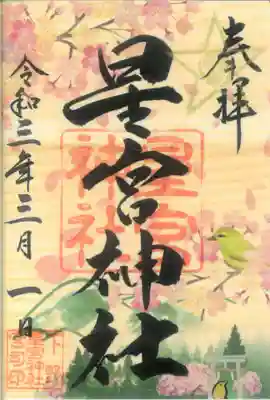 奉拝
星宮神社
令和三年三月一日
星宮
神社